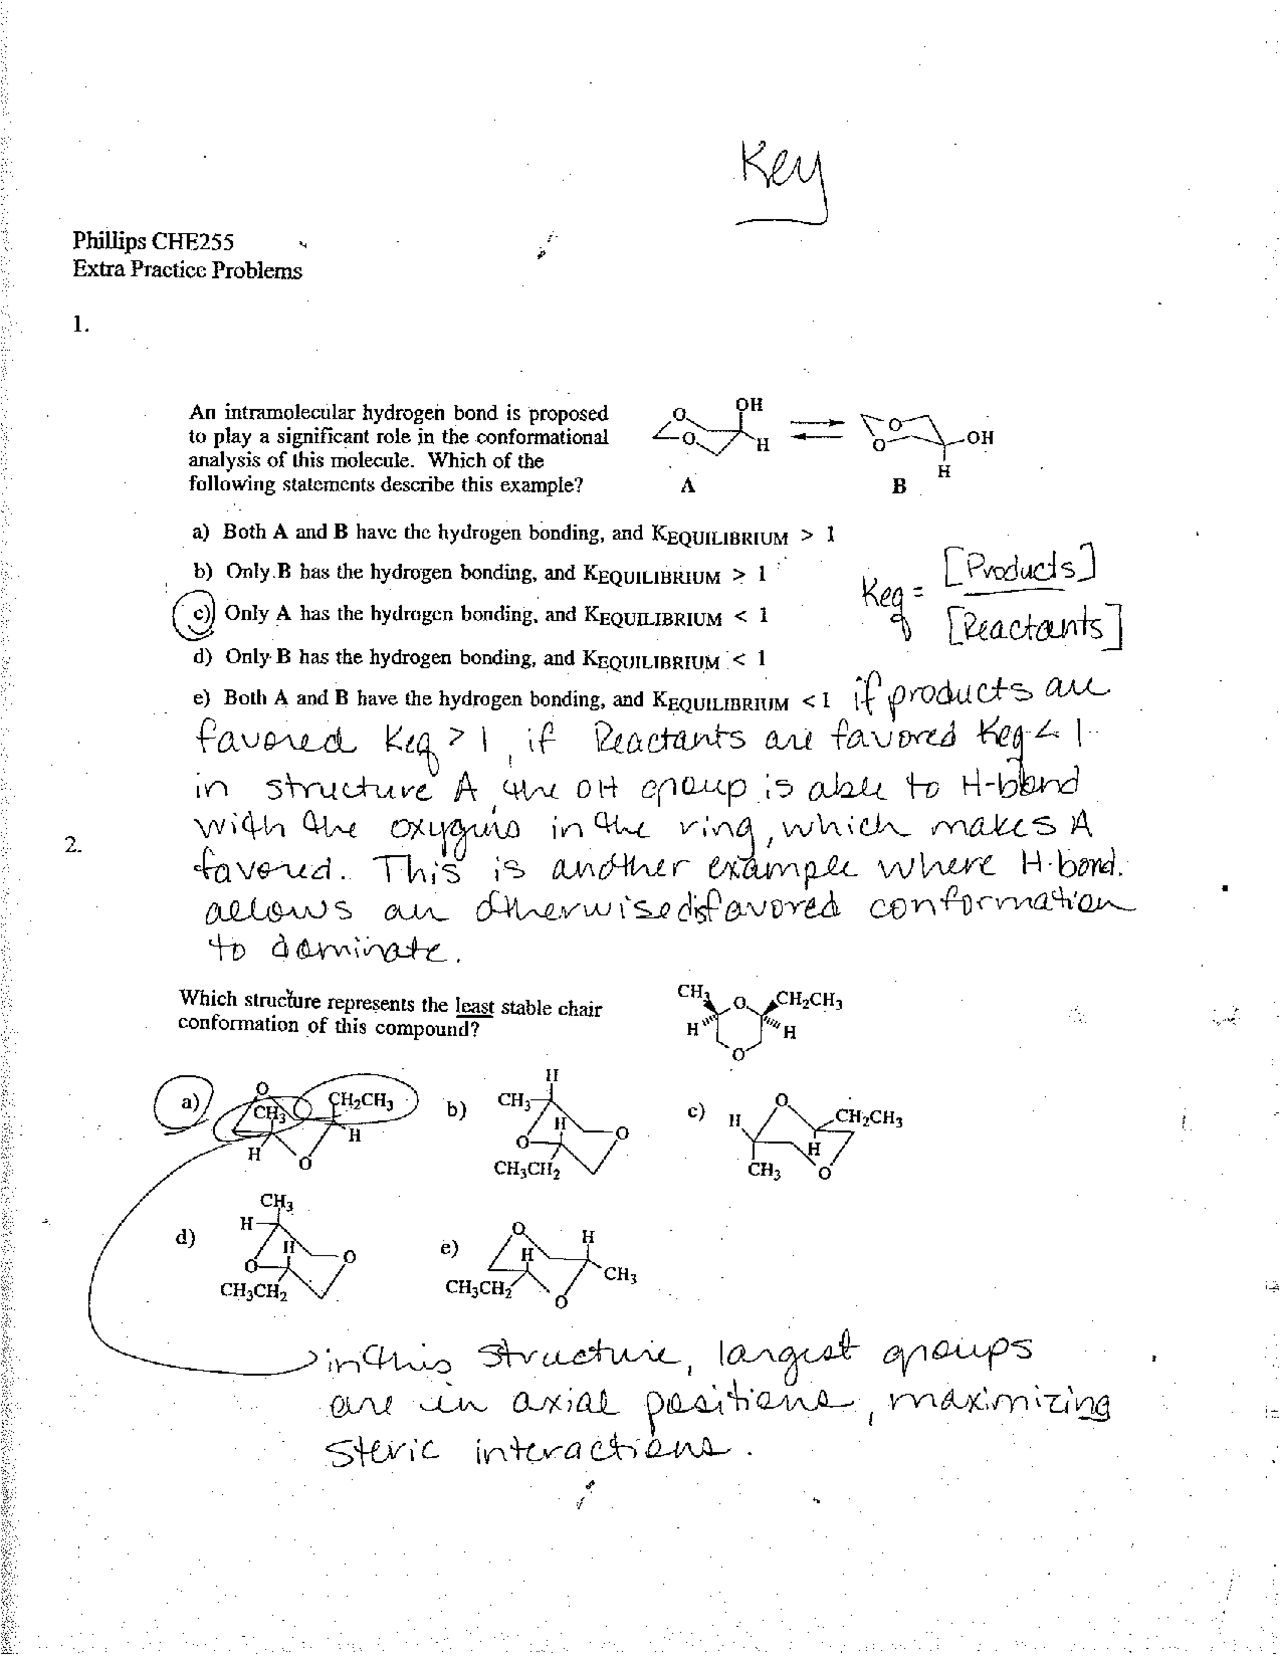 Key
Phillips CHE255
Extra Practice Problems
1.
An intramolecular hydrogen bond is proposed
to play a significant role in the conformational
analysis of this molecule. Which of the
following statements describe this example?
O O OH H
A
O O OH H
B
a) Both A and B have the hydrogen bonding, and KEQUILIBRIUM > 1
b) Only B has the hydrogen bonding, and KEQUILIBRIUM > 1
c) Only A has the hydrogen bonding, and KEQUILIBRIUM < 1
d) Only B has the hydrogen bonding, and KEQUILIBRIUM < 1
e) Both A and B have the hydrogen bonding, and KEQUILIBRIUM < 1
Keq = [Products]
[Reactants]
if products are
favored Keq > 1, if Reactants are favored Keq < 1
in structure A, the OH group is able to H-bond
with the oxygens in the ring, which makes A
2.
favored. This is another example where H-bond.
allows an otherwise disfavored conformation
to dominate.
Which structure represents the least stable chair
conformation of this compound?
CH3 O CH2CH3
H H
O
a) O CH3 CH2CH3
H H
O
b) H
CH3 H
O O
CH3CH2
c) H O CH2CH3
H
CH3 O
d) CH3
H H
O O
CH3CH2
e) O H
H CH3
CH3CH2 O
in this structure, largest groups
are in axial positions, maximizing
steric interactions.